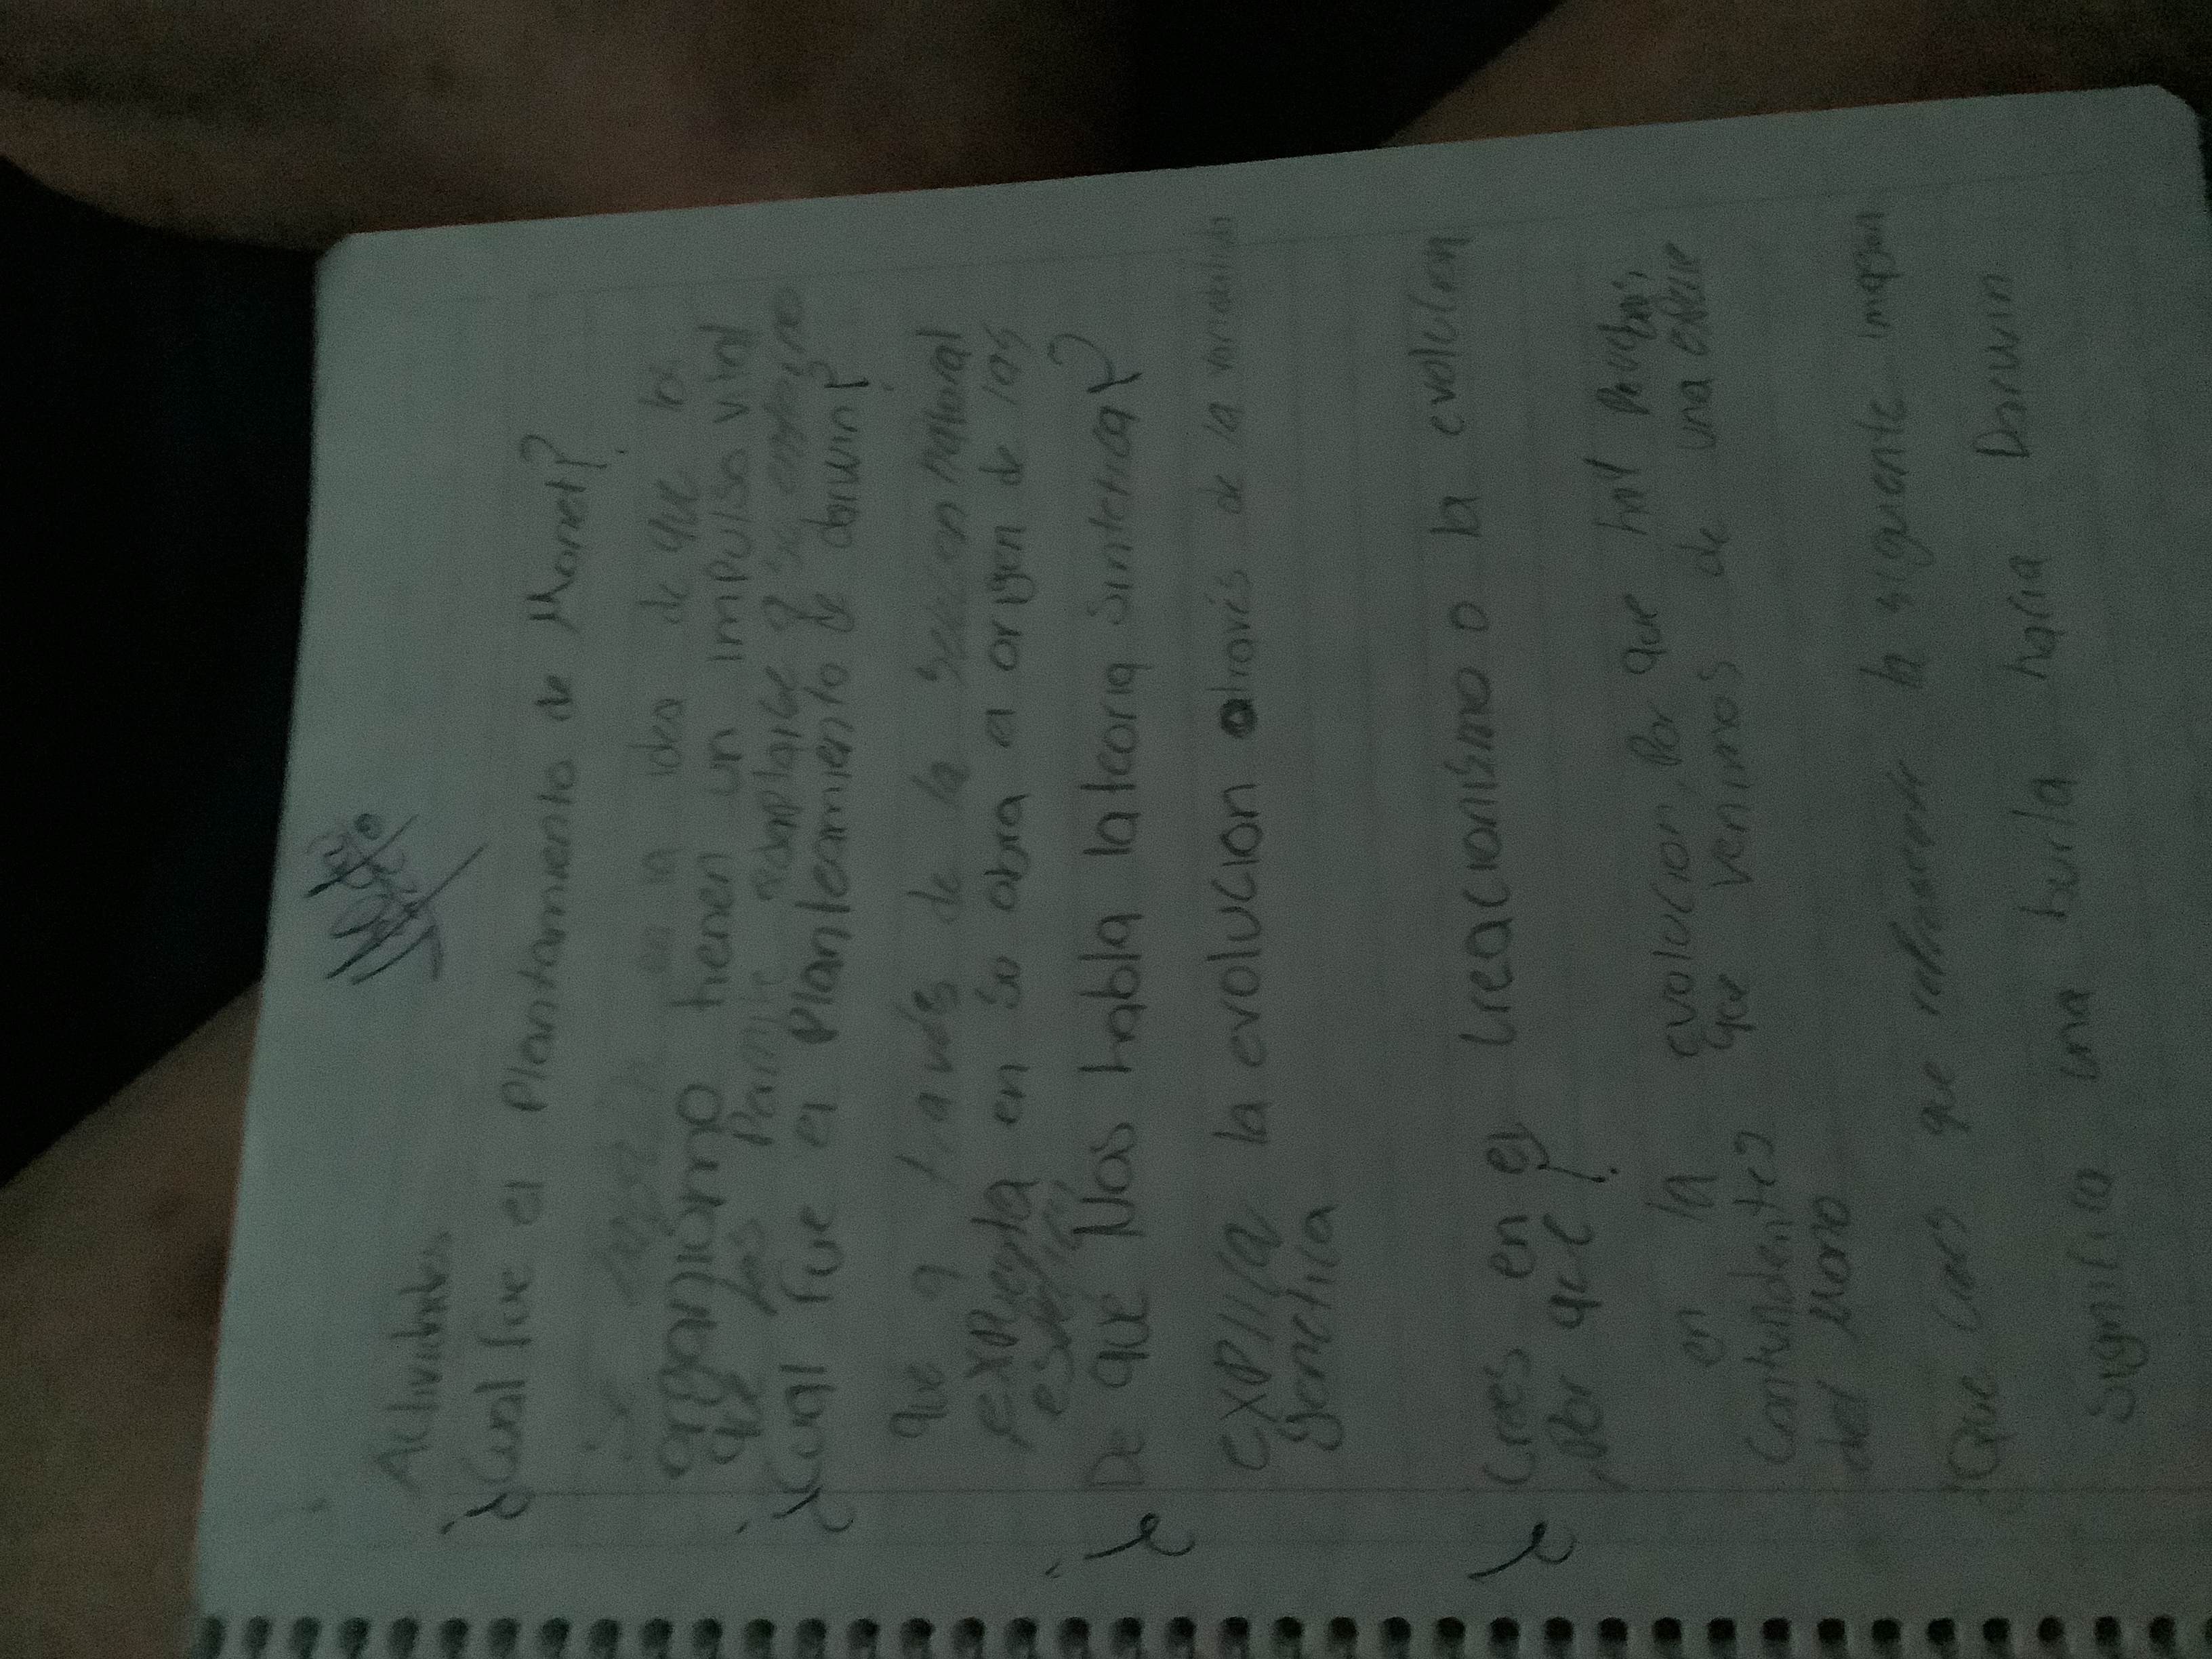 Actividades
¿Cual fue el Plantamiento de Monet?
en la idea de que los
organiomo tienen un impulso vital
que los Permite adaptarse y se
¿Cual fue el Planteamiento de darwin?
que a través de la seleccion natural
expuesta en su obra al origen de las
especies
¿De que Nos habla la teoria sintetica?
explica la evolucion através de la variabilidad
genetica
¿Crees en el creacionismo o la evolucion
Por que?
en la evolucion, Por que hai Pruebas
contundentes que venimos de una especie
del Mono
Que crees que represente la siguente imagen
significa una burla hacia Darwin